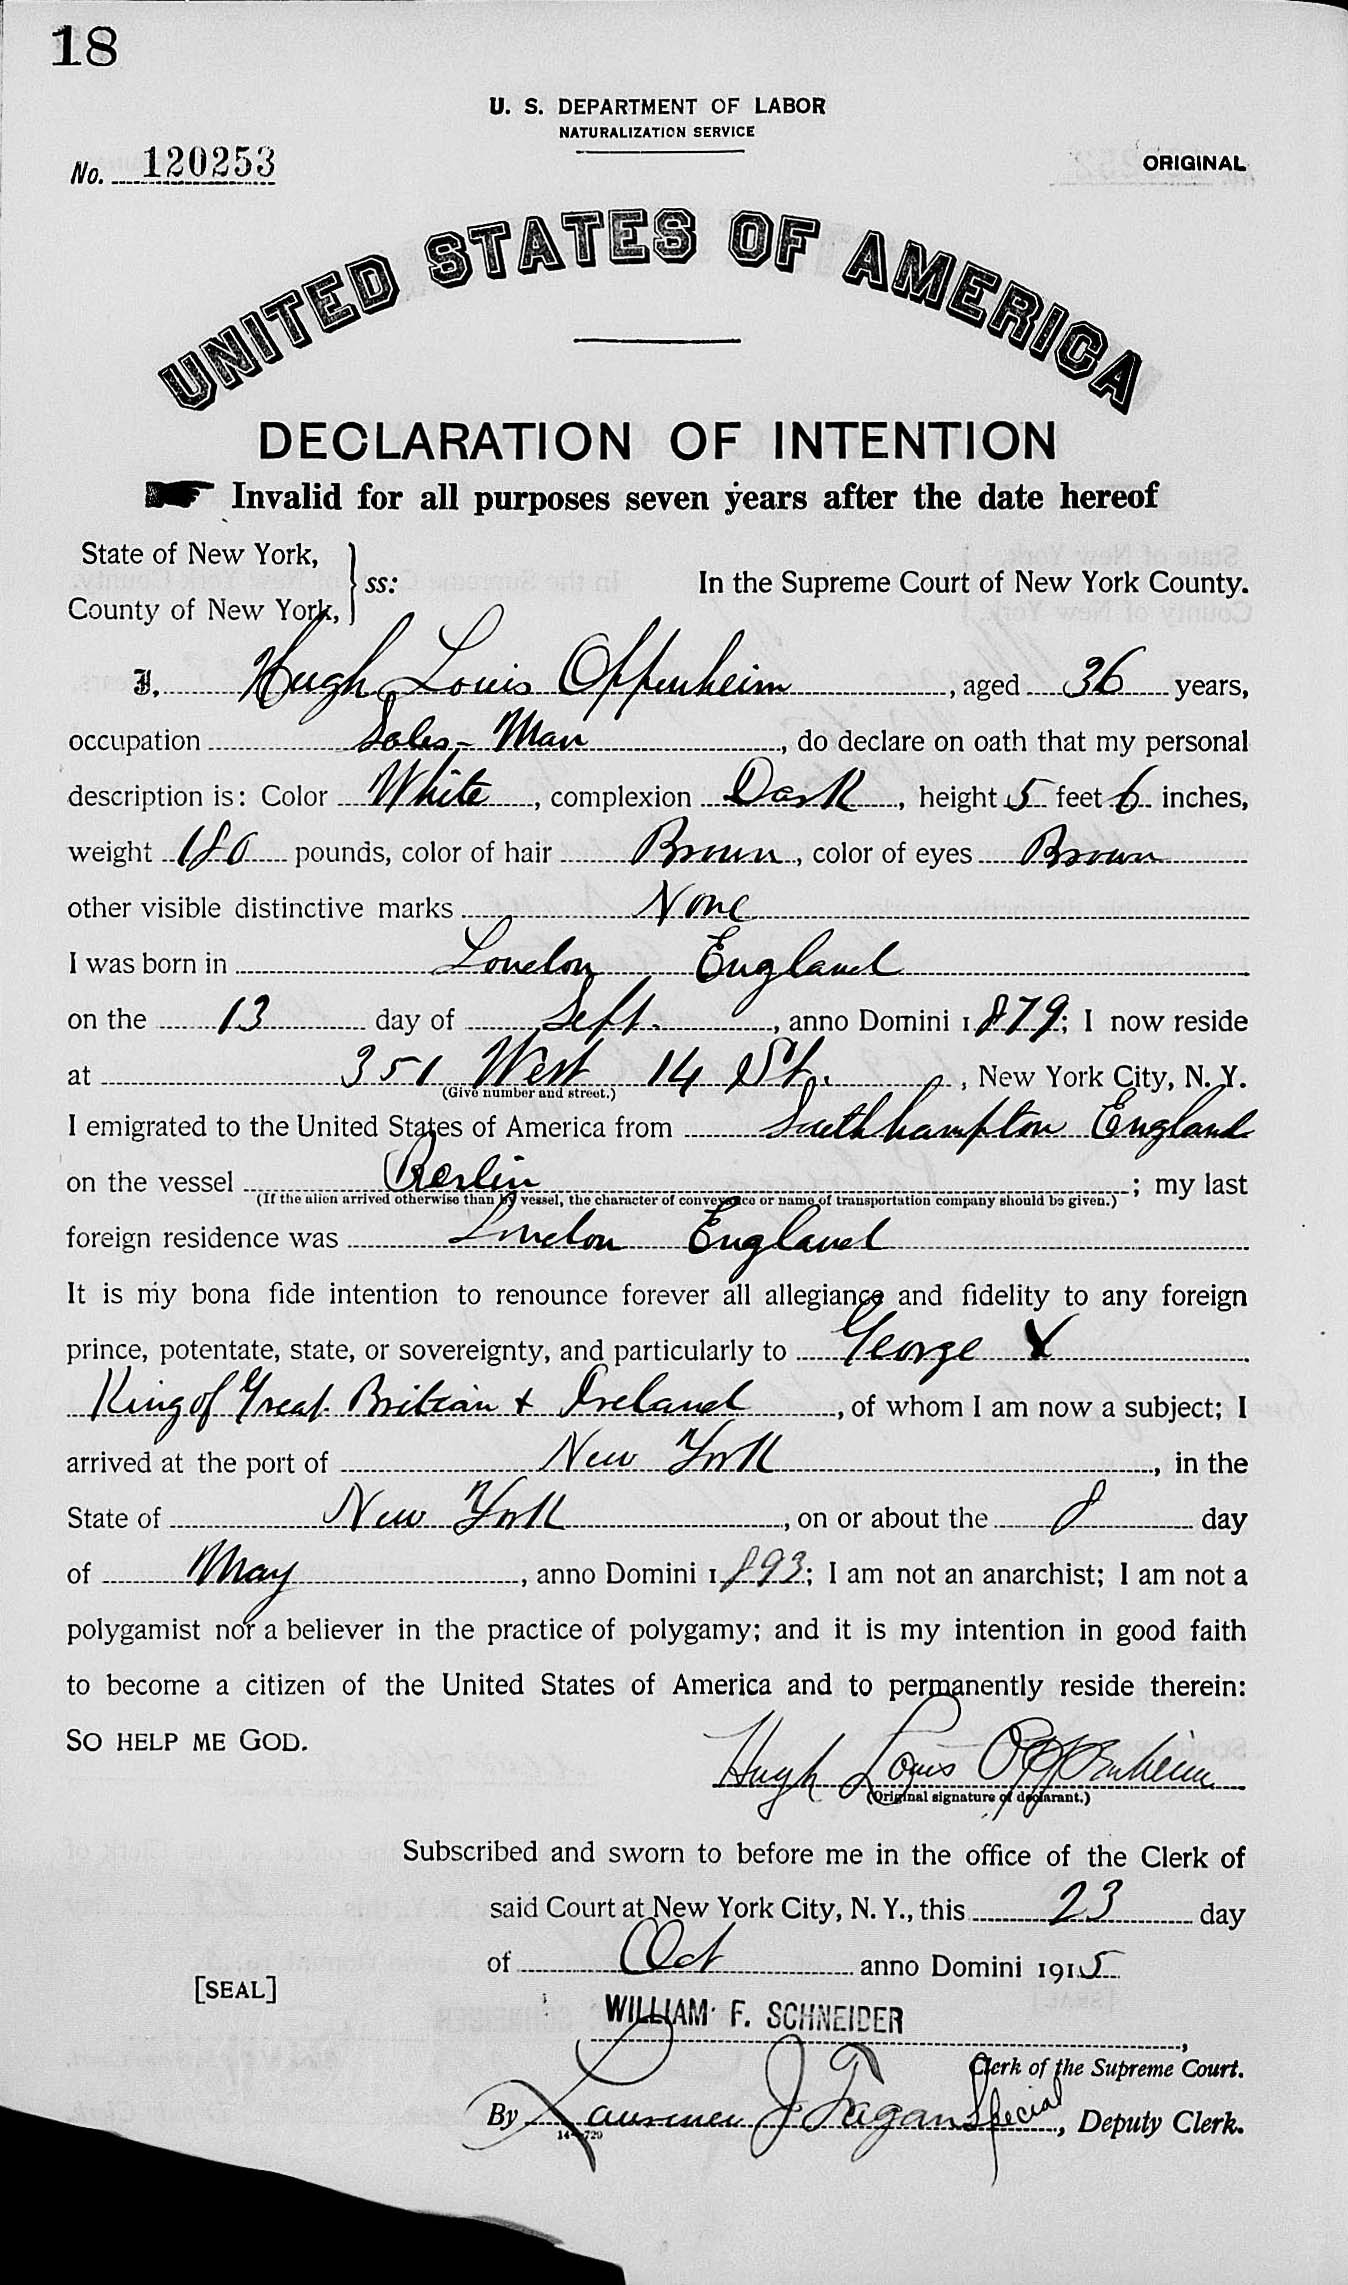 18
U. S. DEPARTMENT OF LABOR
NATURALIZATION SERVICE
No. 120253
ORIGINAL
UNITED STATES OF AMERICA
DECLARATION OF INTENTION
Invalid for all purposes seven years after the date hereof
State of New York,
County of New York, } ss: In the Supreme Court of New York County.
I, Hugh Louis Oppenheim, aged 36 years,
occupation Sales-Man, do declare on oath that my personal
description is: Color White, complexion Dark, height 5 feet 6 inches,
weight 180 pounds, color of hair Brown, color of eyes Brown
other visible distinctive marks None
I was born in London England
on the 13 day of Sept., anno Domini 1879; I now reside
at 351 West 14 St., New York City, N. Y.
(Give number and street.)
I emigrated to the United States of America from Southhampton England
on the vessel Berlin; my last
(If the alien arrived otherwise than by vessel, the character of conveyance or name of transportation company should be given.)
foreign residence was London England
It is my bona fide intention to renounce forever all allegiance and fidelity to any foreign
prince, potentate, state, or sovereignty, and particularly to George V
King of Great Britian & Ireland, of whom I am now a subject; I
arrived at the port of New York, in the
State of New York, on or about the 8 day
of May, anno Domini 1893; I am not an anarchist; I am not a
polygamist nor a believer in the practice of polygamy; and it is my intention in good faith
to become a citizen of the United States of America and to permanently reside therein:
SO HELP ME GOD.
Hugh Louis Oppenheim
(Original signature of declarant.)
Subscribed and sworn to before me in the office of the Clerk of
said Court at New York City, N. Y., this 23 day
of Oct anno Domini 1915
[SEAL]
WILLIAM F. SCHNEIDER,
Clerk of the Supreme Court.
By Laurence J Fagan Special, Deputy Clerk.
14-729